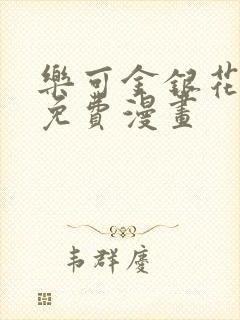 樂可金銀花
免費漫畫
韦群慶